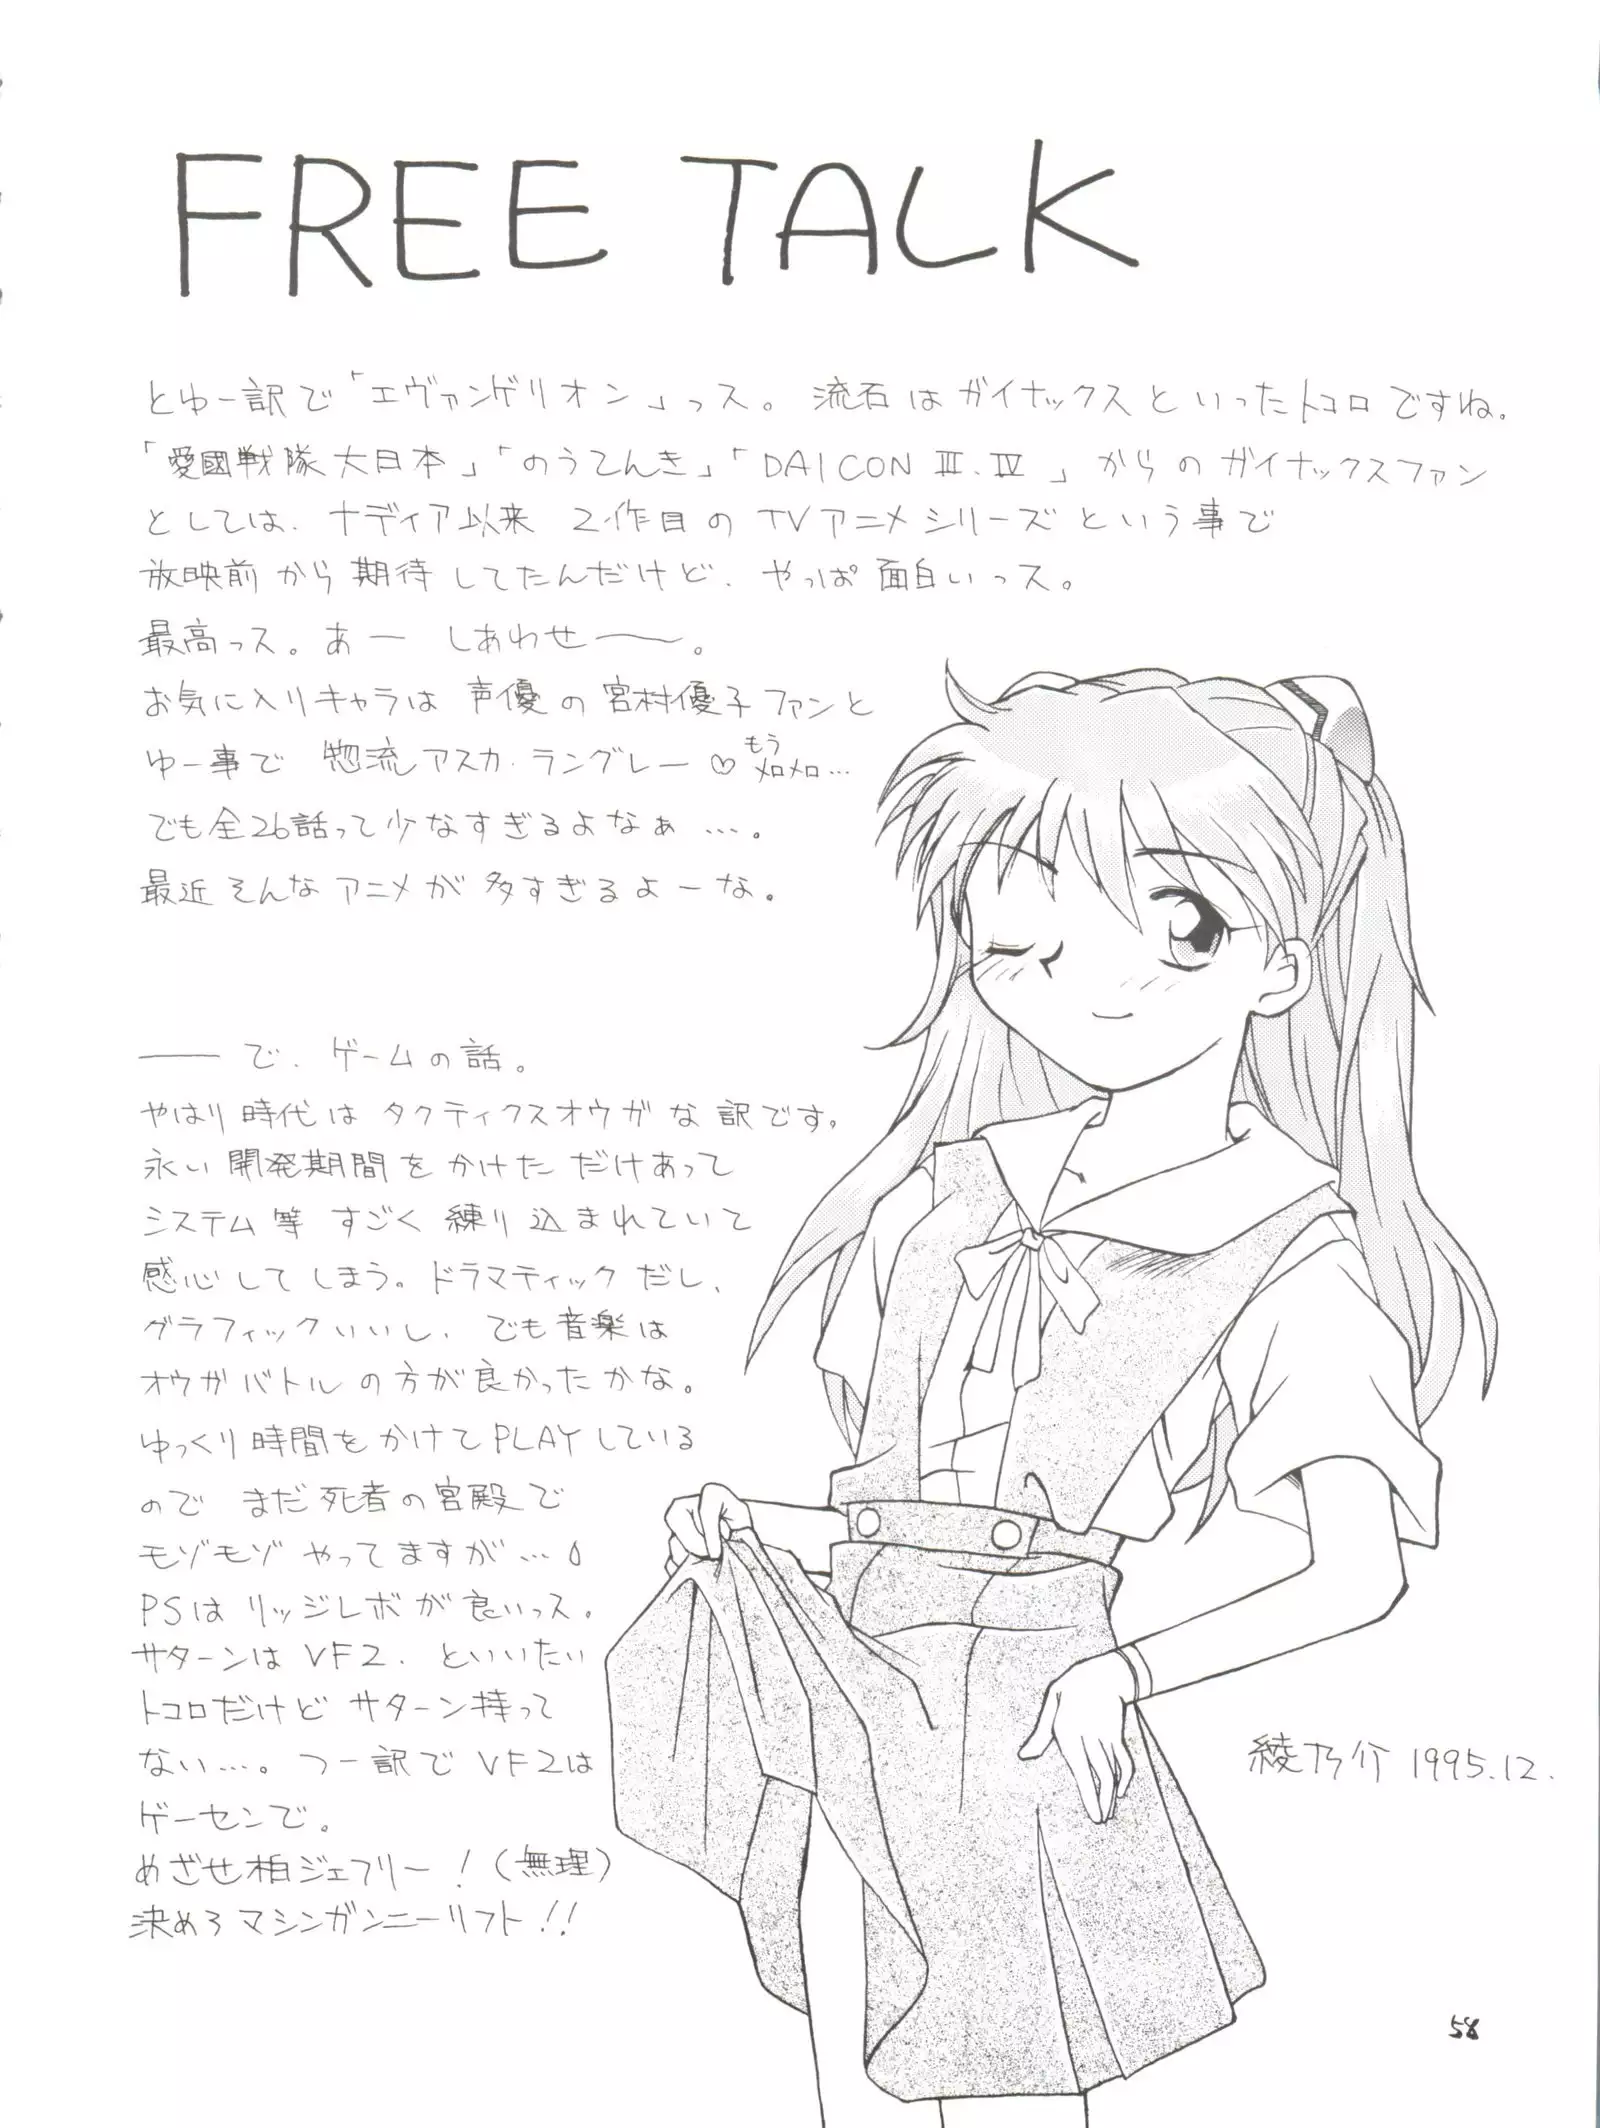 FREE TALK
とゆー訳で「エヴァンゲリオン」っス。流石はガイナックスといったトコロですね。
「愛國戦隊大日本」「のうてんき」「DAICON Ⅲ.Ⅳ」からのガイナックスファン
としては、ナディア以来 2作目のTVアニメシリーズという事で
放映前から期待してたんだけど、やっぱ面白いっス。
最高っス。あー しあわせー〜。
お気に入りキャラは 声優の宮村優子ファンと
ゆー事で 惣流アスカ・ラングレー♡ もうメロメロ…
でも全26話って少なすぎるよなぁ…。
最近そんなアニメが多すぎるよーな。
── で、ゲームの話。
やはり時代はタクティクスオウガな訳です。
永い開発期間をかけただけあって
システム等 すごく練り込まれていて
感心してしまう。ドラマティックだし、
グラフィックいいし、でも音楽は
オウガバトルの方が良かったかな。
ゆっくり時間をかけてPLAYしている
ので まだ死者の宮殿で
モゾモゾやってますが…
PSはリッジレボが良いっス。
サターンはVF2、といいたい
トコロだけど サターン持って
ない…。つー訳でVF2は
ゲーセンで。
めざせ柏ジェフリー!(無理)
決めろマシンガンニーリフト!!
綾乃介 1995.12.
58